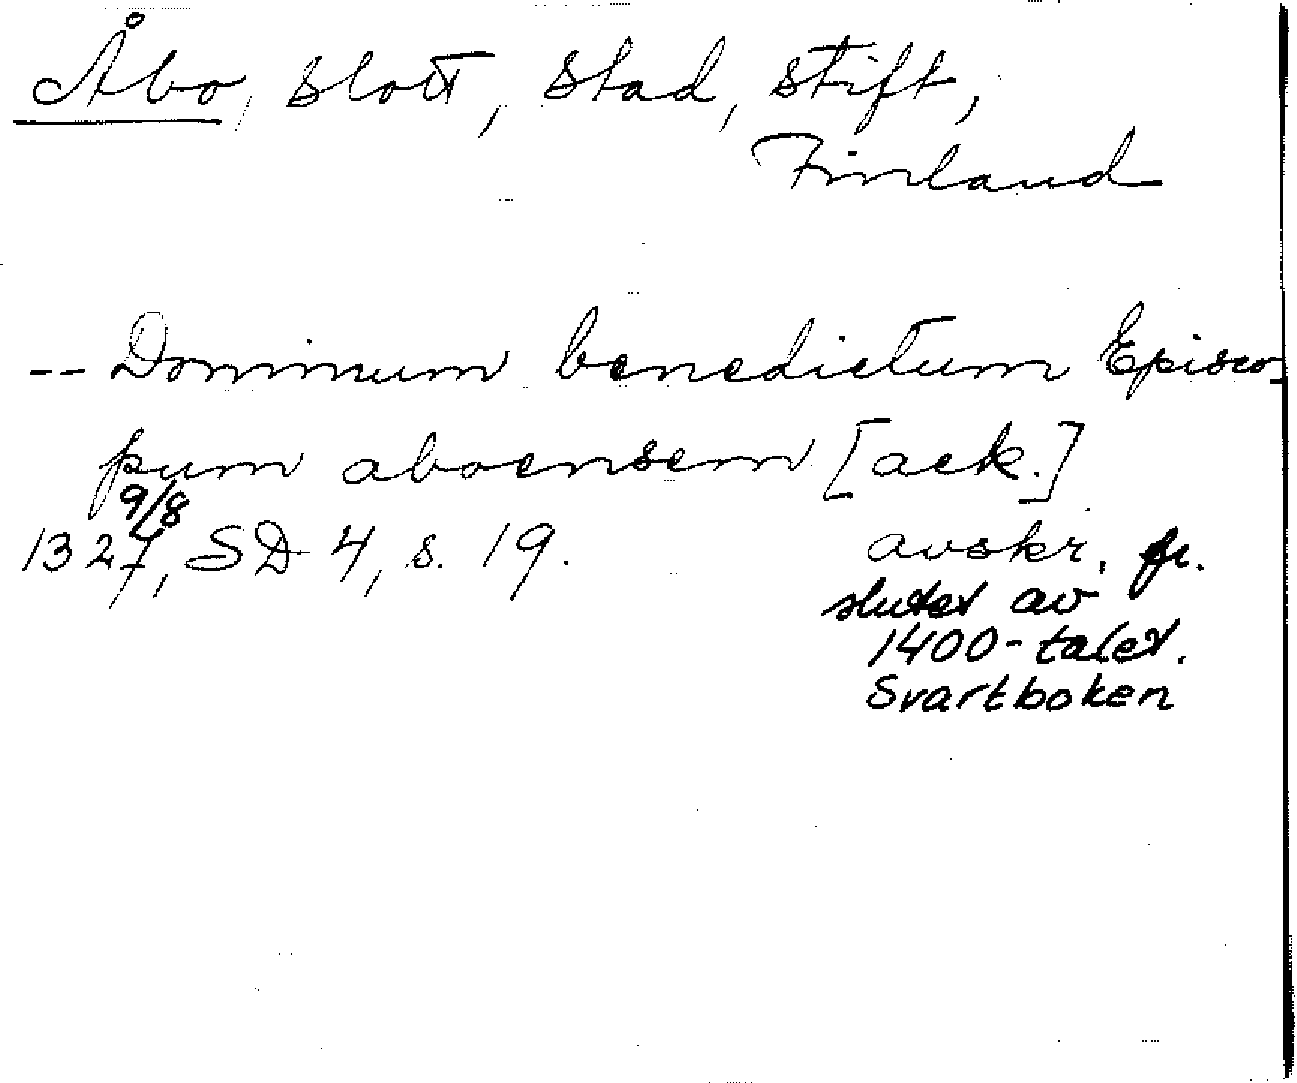 Åbo, slott, stad, stift,
Finland
-- Dominum benedictum Episco-
pum aboensem [ack.]
9/8
1327, SD 4, s. 19. avskr. fr.
slutet av
1400-talet.
Svartboken